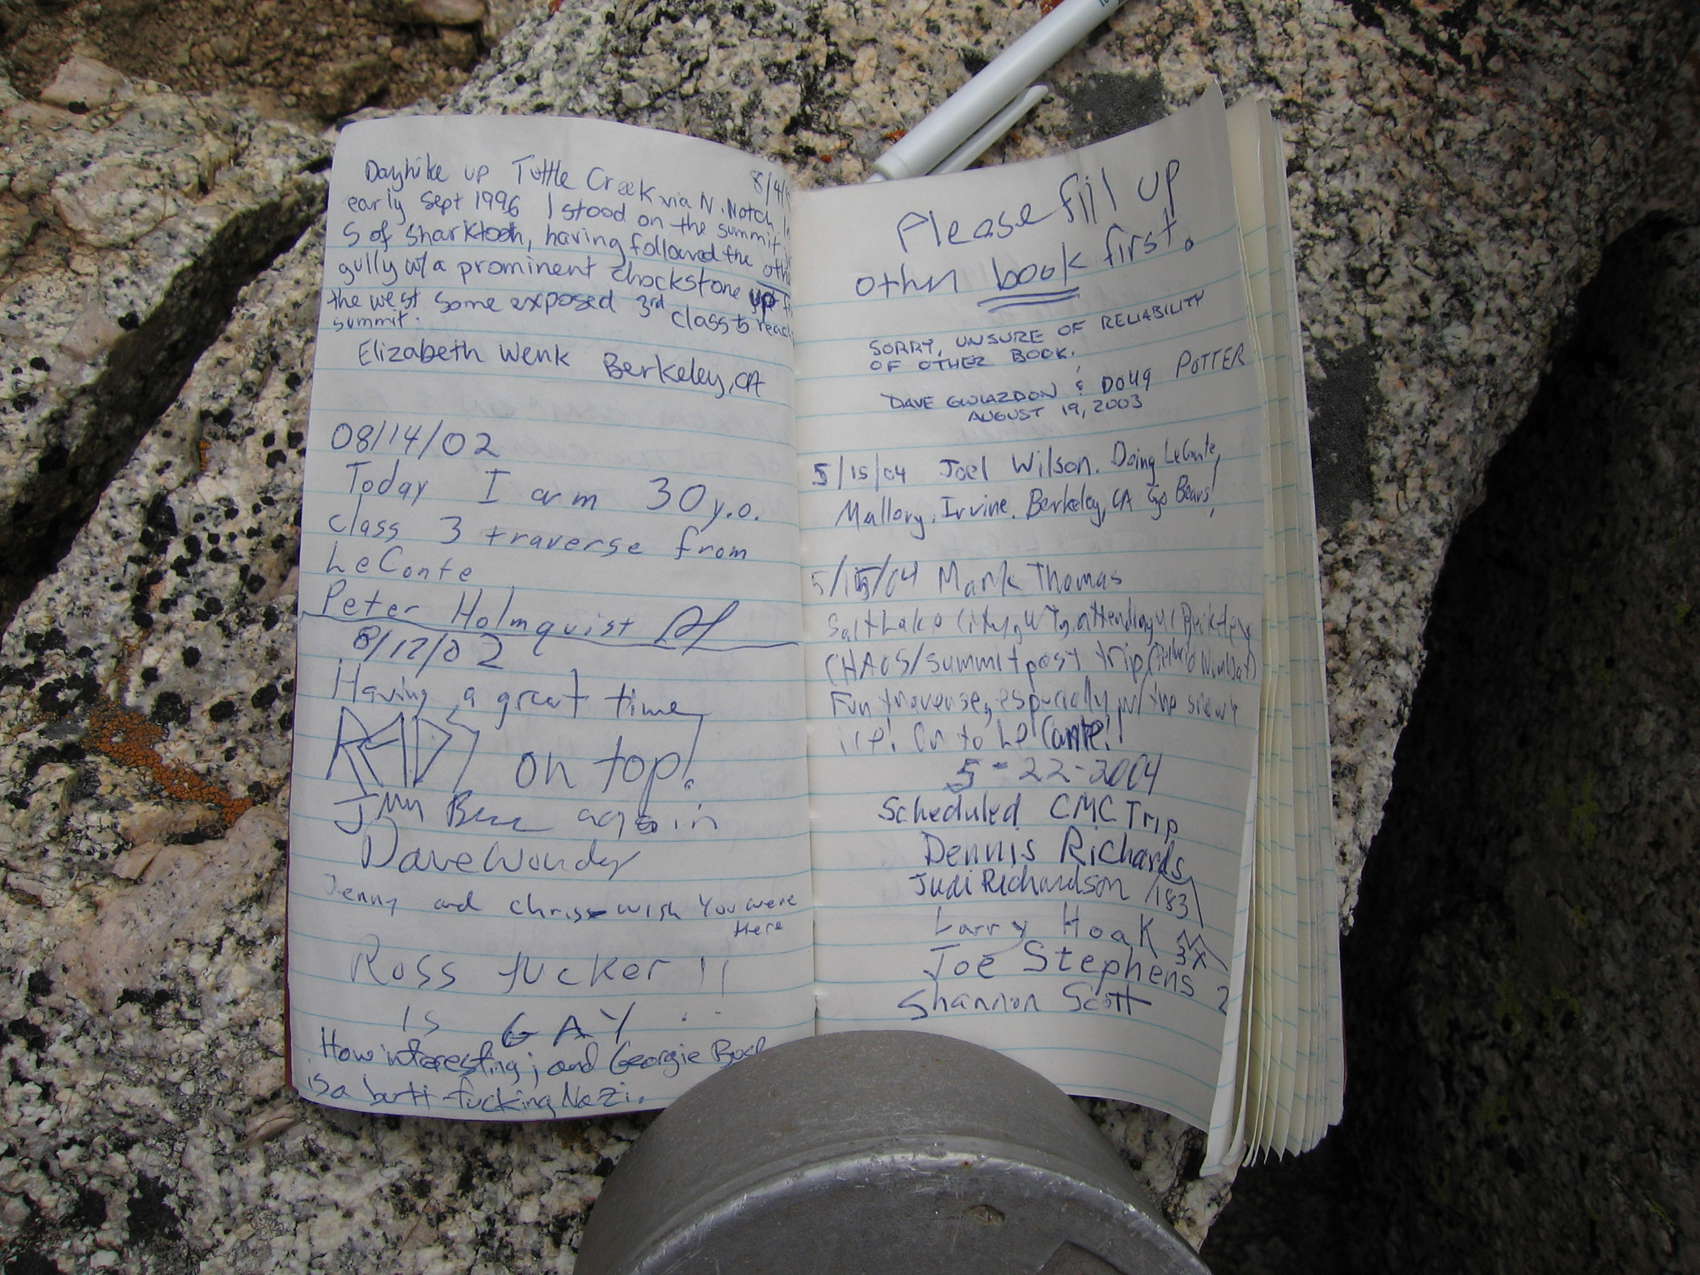 Dayhike up Tuttle Creek via N. Notch. 8/4/
early Sept 1996 I stood on the summit
S of Sharktooth, having followed the other
gully w/a prominent chockstone up
the west some exposed 3rd class to reach
summit.
Elizabeth Wenk Berkeley, CA
08/14/02
Today I am 30 y.o.
class 3 traverse from
LeConte
Peter Holmquist
8/17/02
Having a great time
READY on top!
Jim again
Dave
Jenny and Chris wish You were
Here
Ross fucker !!
is GAY
How interesting; and Georgie Bush
is a butt-fucking Nazi.
Please fill up
other book first.
SORRY, UNSURE OF RELIABILITY
OF OTHER BOOK.
DAVE GWIAZDON & DOUG POTTER
AUGUST 19, 2003
5/15/04 Joel Wilson. Doing LeConte,
Mallory, Irvine. Berkeley, CA Go Bears!
5/15/04 Mark Thomas
Salt Lake City, UT, attending
CHAOS/Summitpost trip
Fun traverse, especially w/ the snow &
ice! On to Le Conte!!
5-22-2004
Scheduled CMC Trip
Dennis Richards
Judi Richardson 183
Larry Hoak
3x
Joe Stephens 2
Shannon Scott